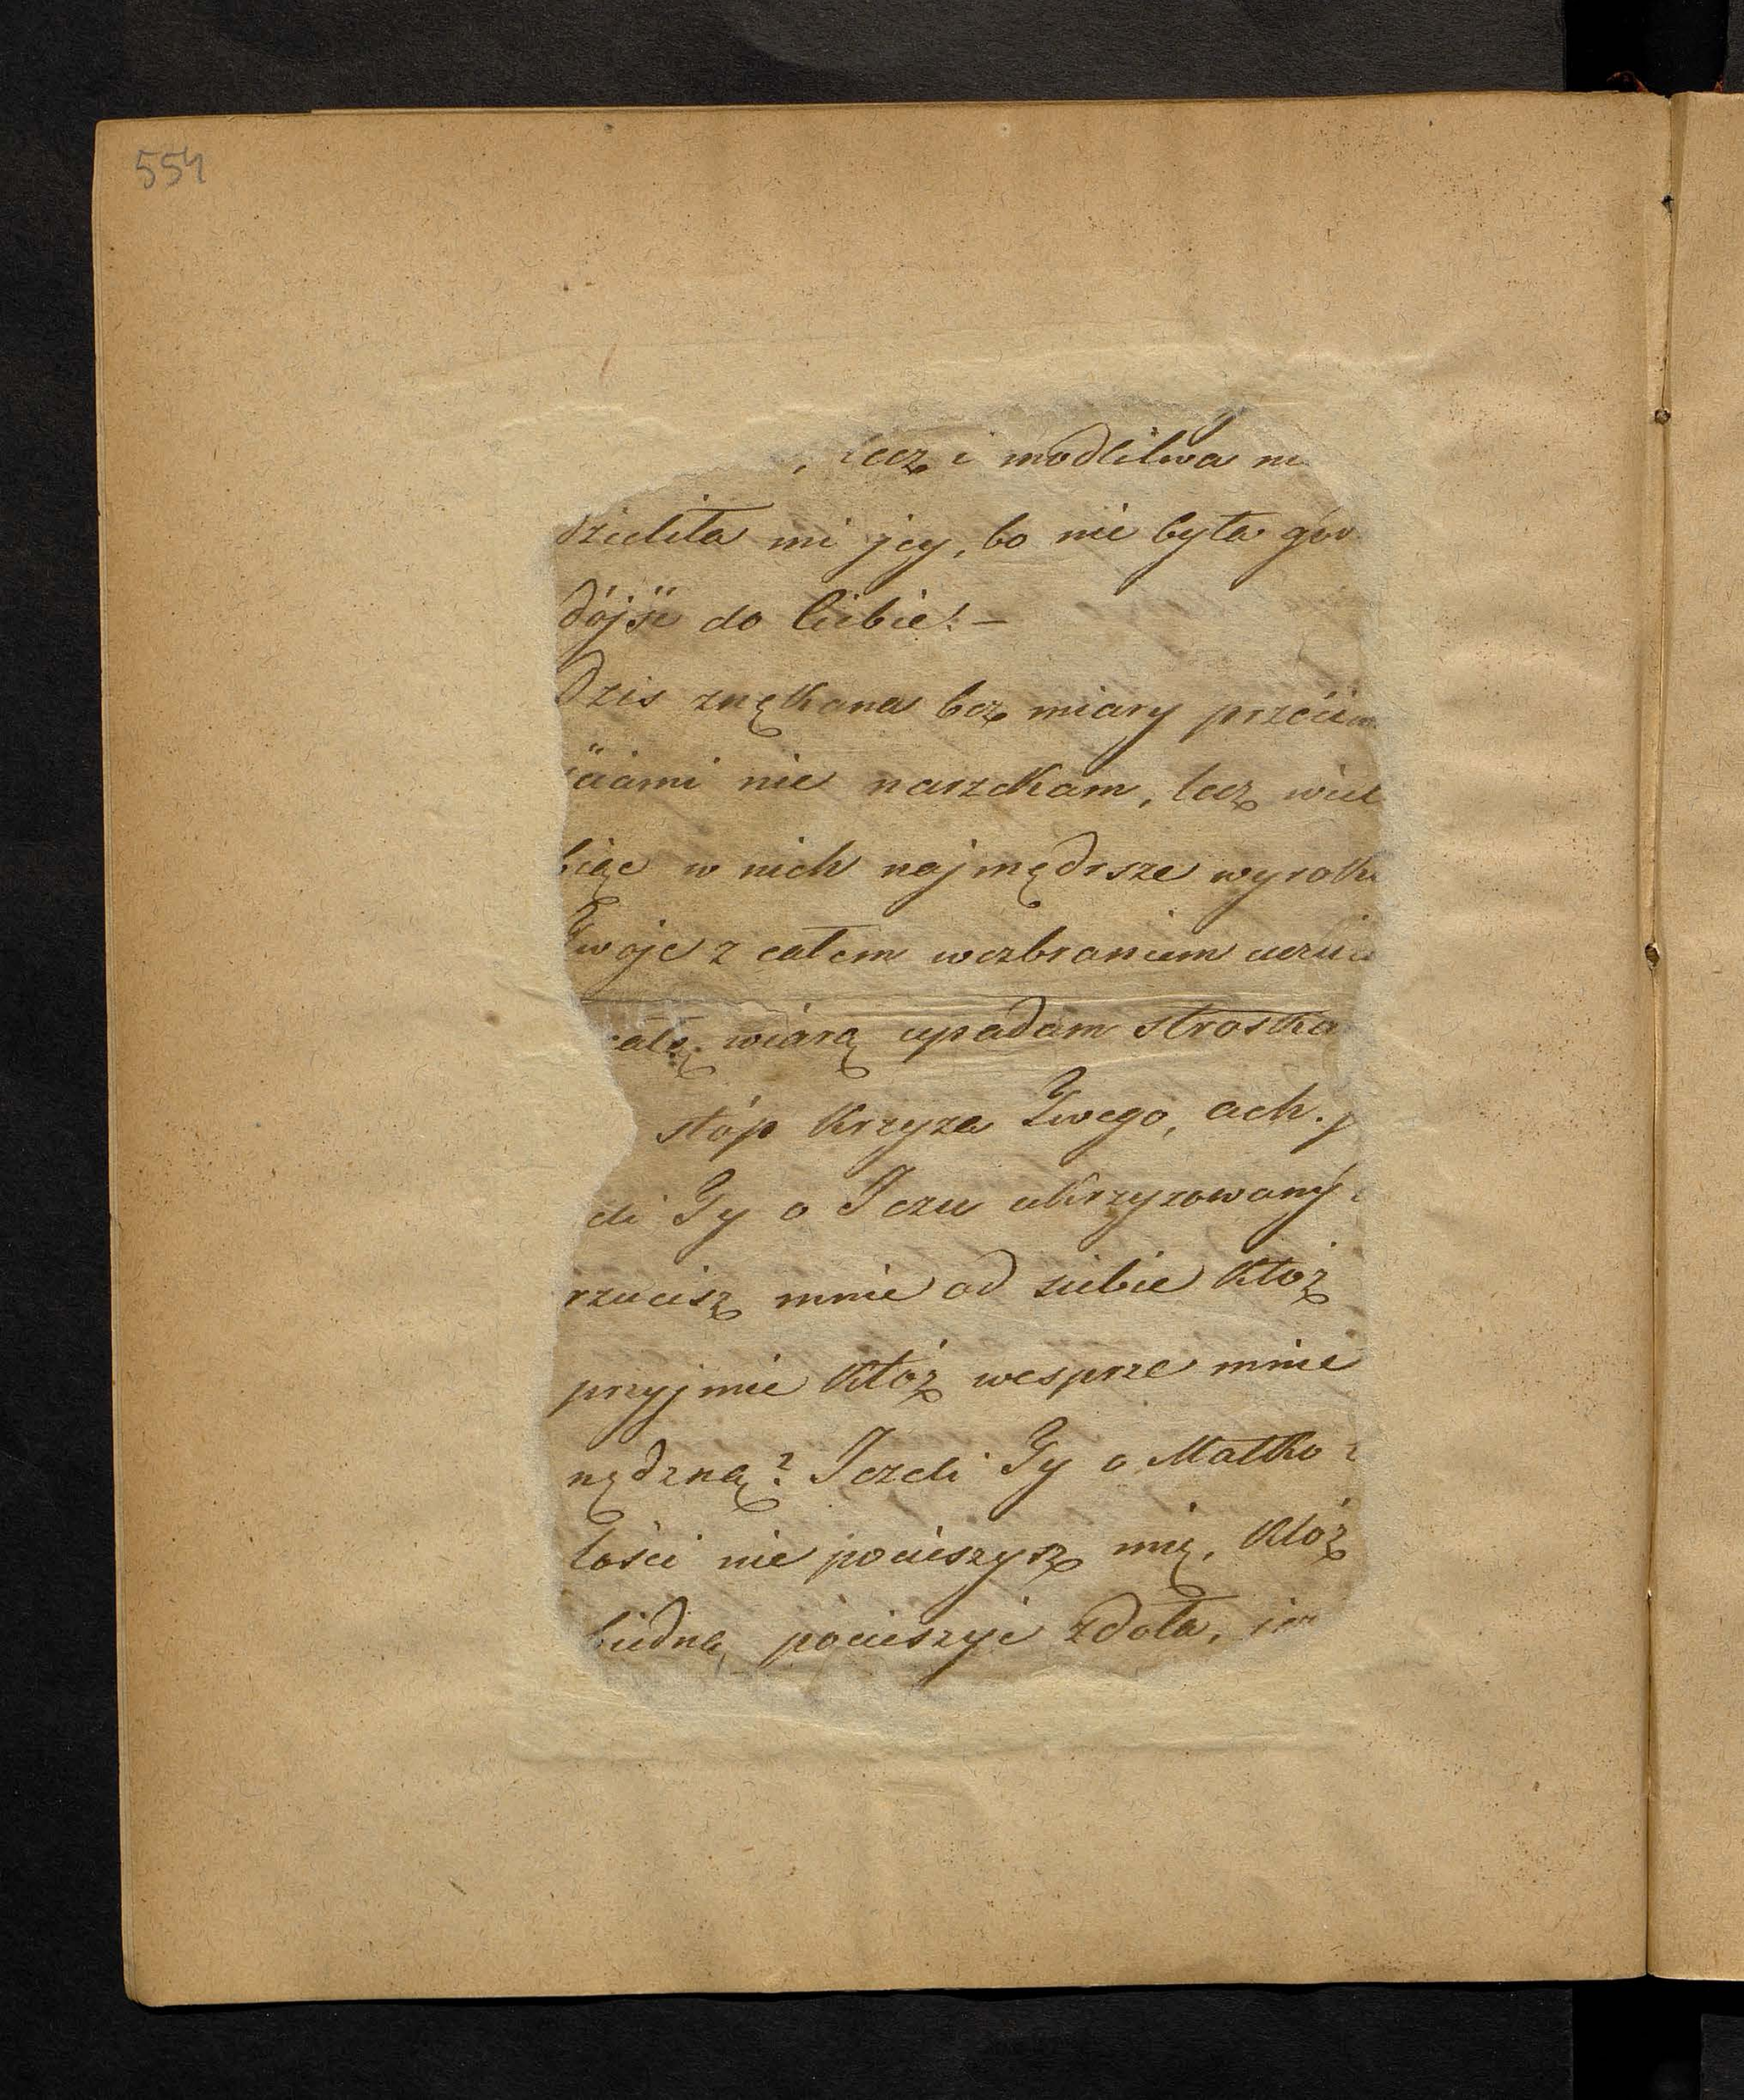 554
, lecz i modlitwa ni
dzieliła mi jey, bo nie była go
dójść do Ciebie! –
Dzis znękana bez miary przeciw
ściami nie narzekam, lecz wiel
biąc w nich najmędrsze wyroki
Twoje z całem wezbraniem uczuci
całą wiarą upadam stroska
stóp Krzyza Twego, ach.
eli Ty o Jezu ukrzyzowany
rzucisz mnie od siebie Któż
przyjmie Któż wesprze mnie
nędzną? Jezeli Ty o Matko
łości nie pocieszysz mię, Któż
biedną pocieszyć zdoła,